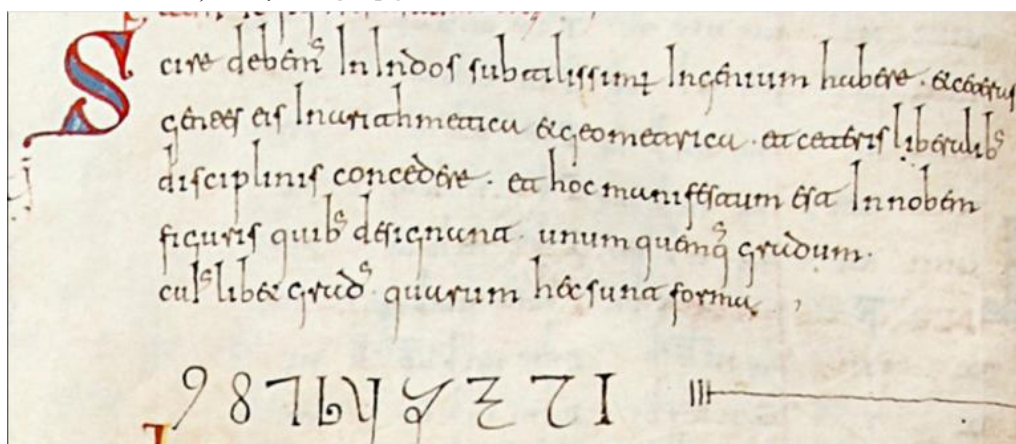 Scire debem⁹ In Indos subtilissimū Ingenium habere · & ceteras
gentes eis In arithmetica & geometrica · et ceteris liberalib⁹
disciplinis concedere · et hoc manifestum est In nobem
figuris quib⁹ designant unumquemq⁹ gradum ·
cuiuslibet grad⁹ · quarum hec sunt forma
9 8 7 6 5 4 3 2 1